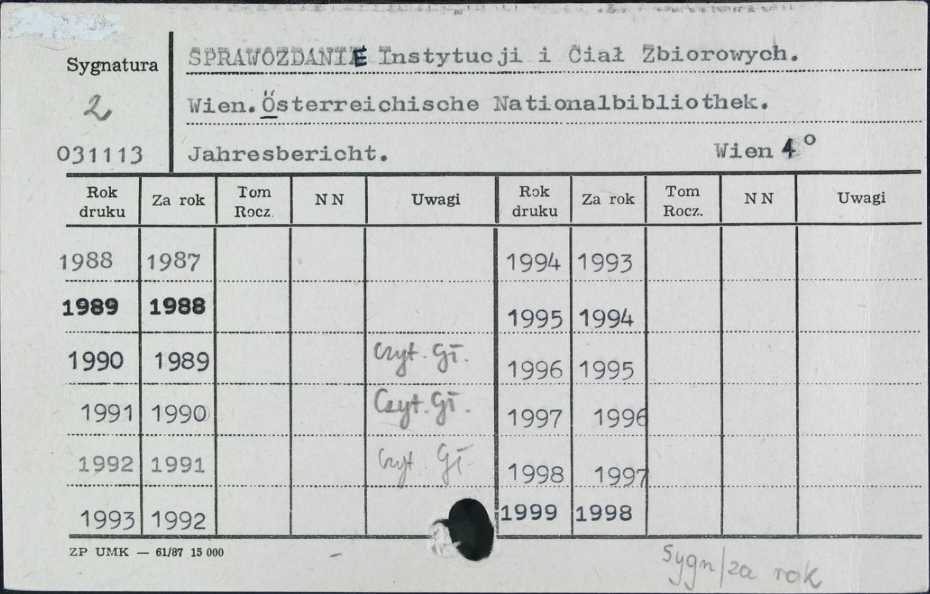 Sygnatura
2
031113
SPRAWOZDANIE Instytucji i Ciał Zbiorowych.
Wien. Österreichische Nationalbibliothek.
Jahresbericht. Wien 4°
Rok druku Za rok Tom Rocz. NN Uwagi Rok druku Za rok Tom Rocz. NN Uwagi
1988 1987 1994 1993
1989 1988 1995 1994
1990 1989 Czyt. Gł. 1996 1995
1991 1990 Czyt. Gł. 1997 1996
1992 1991 Czyt Gł 1998 1997
1993 1992 1999 1998
ZP UMK — 61/87 15 000
Sygn/za rok